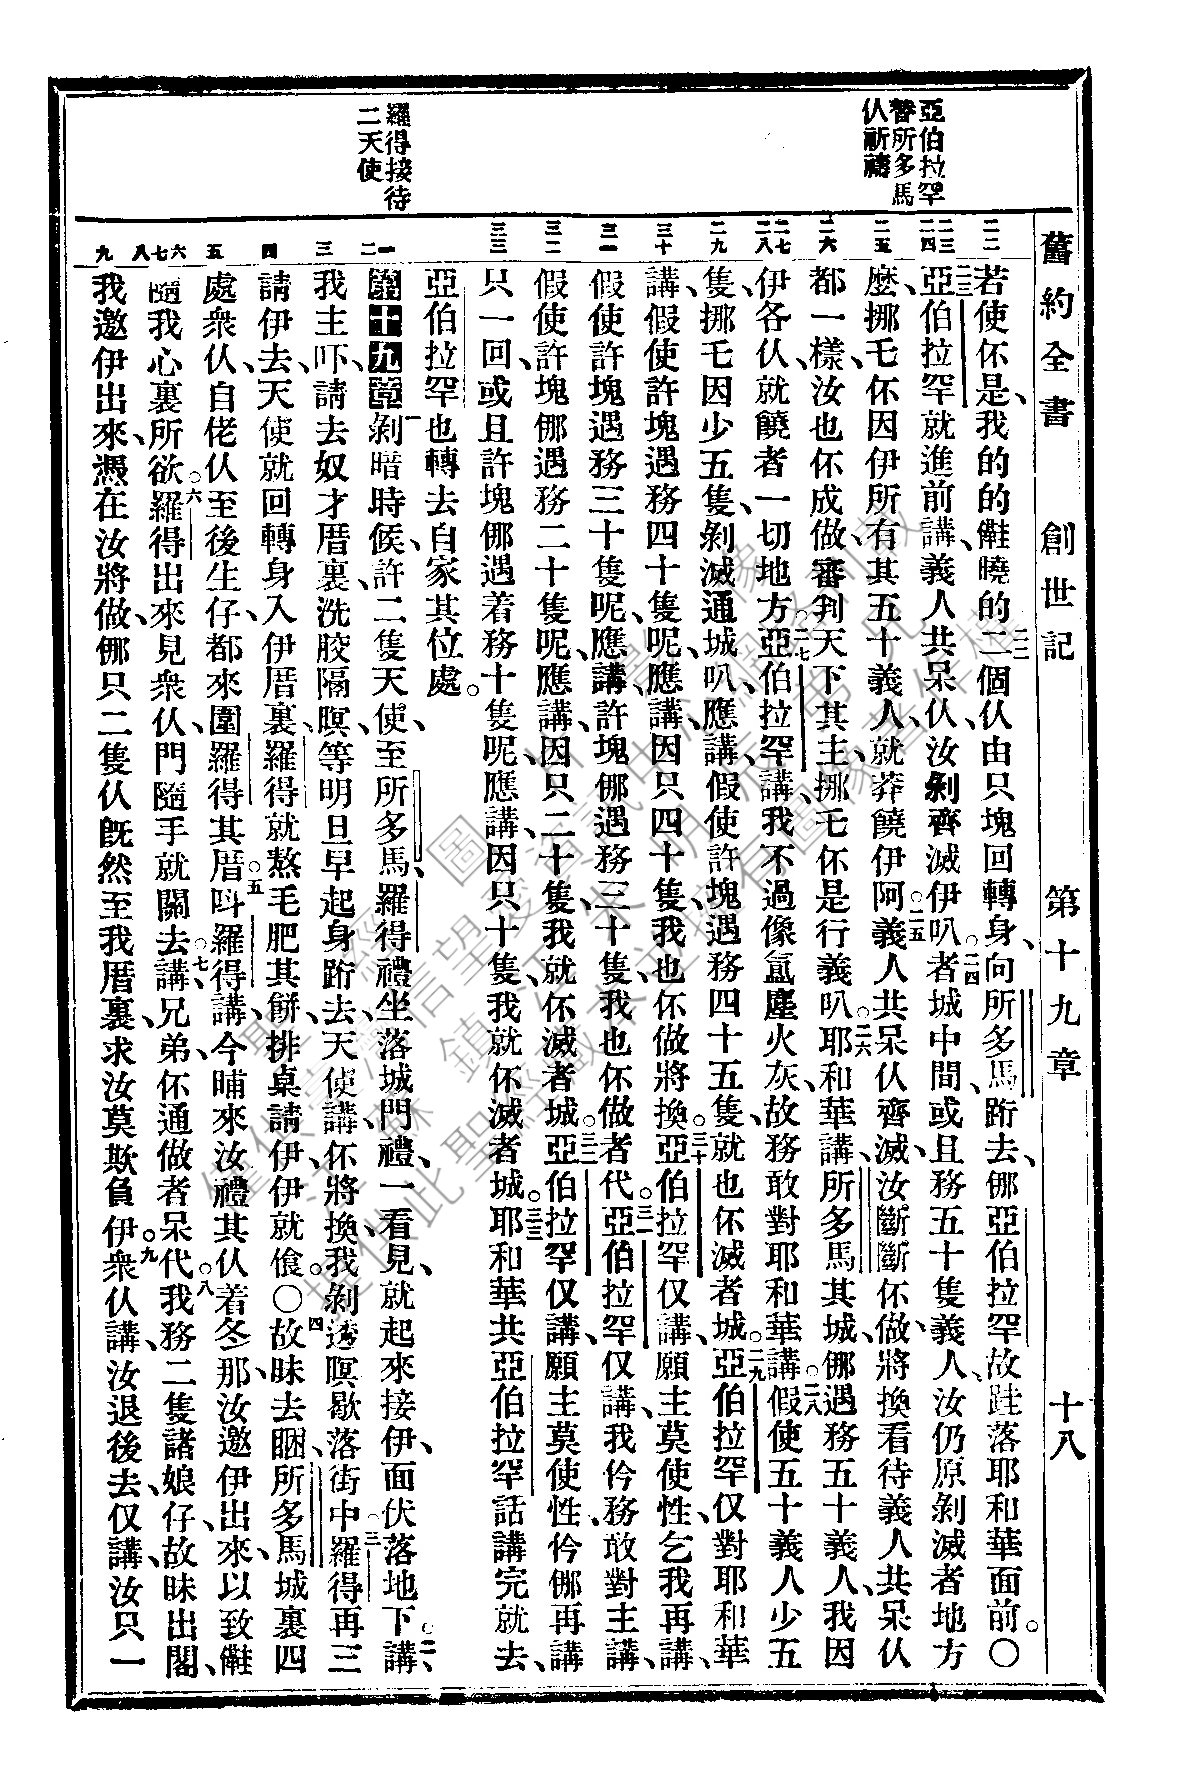 舊約全書 創世記 第十九章 十八
亞伯拉罕
替所多馬
仈祈禱
羅得接待
二天使
二二
二三
二四
二五
二六
二七
二八
二九
三十
三一
三二
三三
一
二
三
四
五
六
七
八
九
若使伓是、我的的㒕曉的二二個仈由只塊回轉身、向所多馬跡去、㑚亞伯拉罕故跬落耶和華面前。〇
二三亞伯拉罕就進前講、義人共呆仈、汝剝齊滅伊叭。二四者城中間、或且務五十隻義人、汝仍原剝滅者地方
麽、挪乇伓因伊所有其五十義人、就莽饒伊阿。二五義人共呆仈齊滅、汝斷斷伓做、將換看待義人共呆仈
都一樣、汝也伓成做、審判天下其主、挪乇伓是行義叭。二六耶和華講、所多馬其城、㑚遇務五十義人、我因
伊各仈就饒者一切地方。二七亞伯拉罕講、我不過像氳塵火灰、故務敢對耶和華講。二八假使五十義人少五
隻、挪乇因少五隻、剝滅通城叭、應講、假使許塊遇務四十五隻、就也伓滅者城。二九亞伯拉罕仅對耶和華
講、假使許塊遇務四十隻呢、應講、因只四十隻我也伓做將換。三十亞伯拉罕仅講、願主莫使性、乞我再講、
假使許塊遇務三十隻呢、應講、許塊㑚遇務三十隻、我也伓做者代。三一亞伯拉罕仅講、我仱務敢對主講、
假使許塊㑚遇務二十隻呢、應講、因只二十隻、我就伓滅者城。三二亞伯拉罕仅講、願主莫使性、仱㑚再講
只一回、或且許塊㑚遇着務十隻呢、應講、因只十隻、我就伓滅者城。三三耶和華共亞伯拉罕話講完就去、
亞伯拉罕也轉去自家其位處。
第十九章一剝暗時候、許二隻天使至所多馬、羅得禮坐落城門禮、一看見、就起來接伊、面伏落地下。二講、
我主吓、請去奴才厝裏洗骹隔暝、等明旦早起身跡去、天使講、伓將換、我剝透暝歇落街中。三羅得再三
請伊去、天使就回轉身入伊厝裏、羅得就熬毛肥其餅排桌請伊、伊就飡。〇四故昧去睏、所多馬城裏四
處衆仈、自佬仈至後生仔、都來圍羅得其厝。五呌羅得講、今晡來汝禮其仈着冬那、汝邀伊出來、以致㒕
隨我心裏所欲。六羅得出來見衆仈、門隨手就關去。七講、兄弟、伓通做者呆代。八我務二隻諸娘仔、故昧出閣、
我邀伊出來、憑在汝將做、㑚只二隻仈旣然至我厝裏、求汝莫欺負伊。九衆仈講、汝退後去、仅講、汝只一